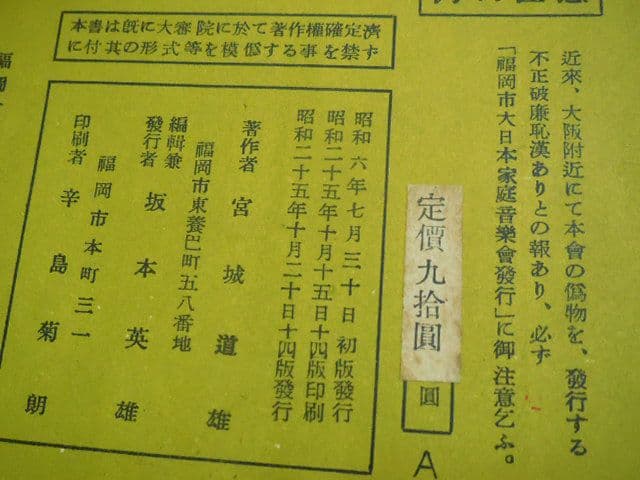 近來、大阪附近にて本會の僞物を、發行する
不正破廉恥漢ありとの報あり、必ず
「福岡市大日本家庭音樂會發行」に御注意乞ふ。
定價九拾圓
圓
A
本書は既に大審院に於て著作權確定濟
に付其の形式等を模倣する事を禁ず
昭和六年七月三十日初版發行
昭和二十五年十月十五日十四版印刷
昭和二十五年十月二十日十四版發行
著作者 宮城道雄
福岡市東養巴町五八番地
編輯兼發行者 坂本英雄
福岡市本町三一
印刷者 辛島菊朗
福岡